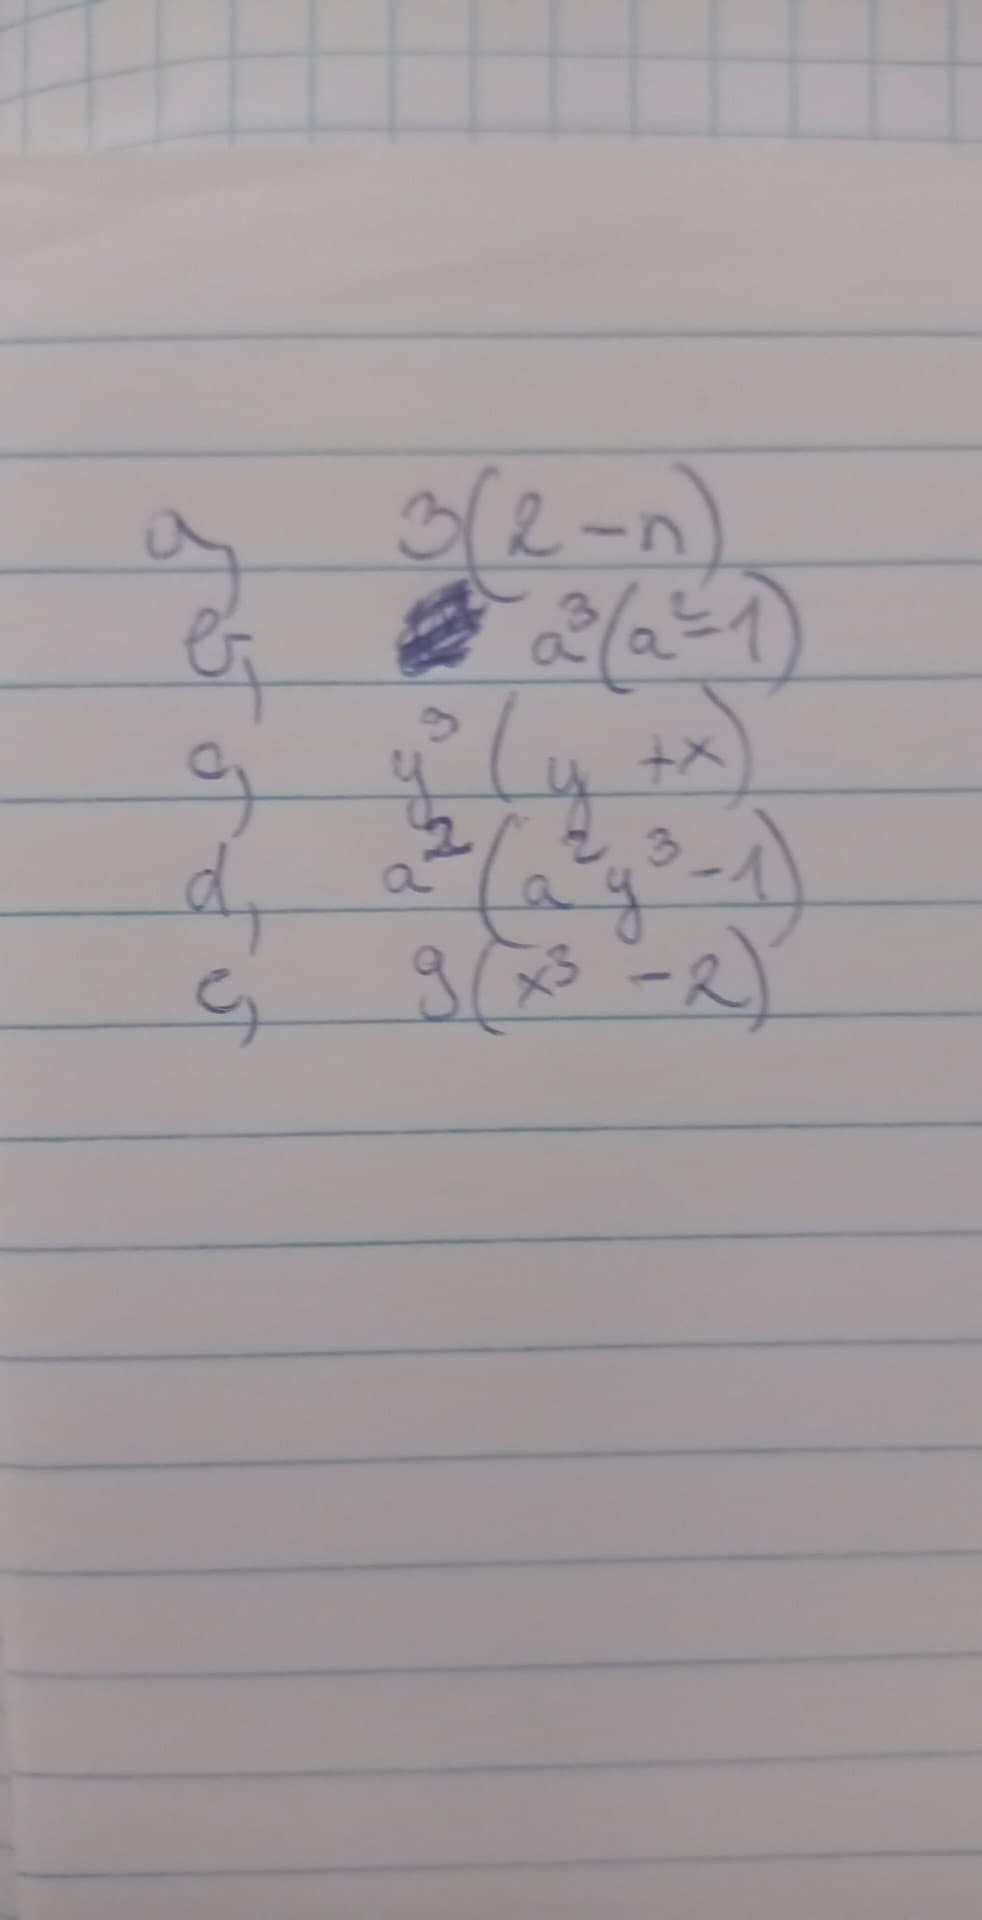 a, 3(2-n)
b, a³(a²-1)
c, y³(y+x)
d, a²(a²y³-1)
e, 9(x³-2)